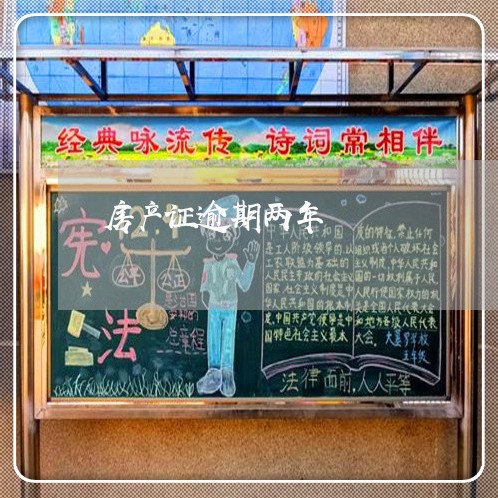 经典咏流传 诗词常相伴
房产证逾期两年
宪
法
公平
公正
总章程
中华人民共和国
是工人阶级领导的,以
工农联盟为基础的
人民民主专政的社会主义
国家,社会主义制度是中
华人民共和国的根本制
度,中国共产党领导是中
国特色社会主义最本
质的特征,禁止任何
组织或者个人破坏社会
主义制度,中华人民共和
国的一切权利属于人民,
人民行使国家权力的机
关是全国人民代表大会
和地方各级人民代表
大会。
学校
五年级
法律面前,人人平等